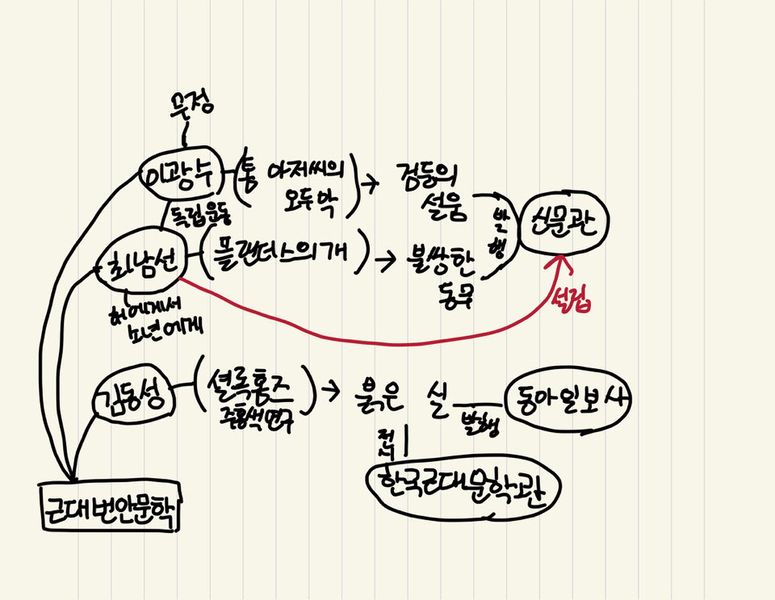 무정
이광수
(톰 아저씨의
오두막)
검둥의
설움
발행
신문관
독립운동
최남선
(플랜더스의 개)
불쌍한
동무
해에게서
소년에게
설립
김동성
(셜록홈즈
주홍색연구)
붉은 실
발행
동아일보사
전시
한국근대문학관
근대번안문학